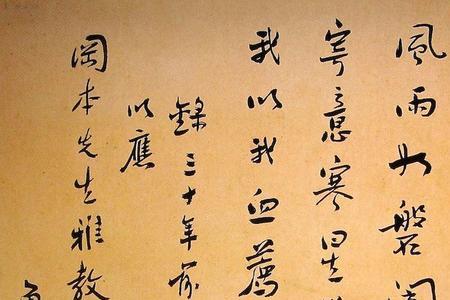 風雨如磐闇
寄意寒星
我以我血薦
錄三十年前
以應
岡本先生雅教